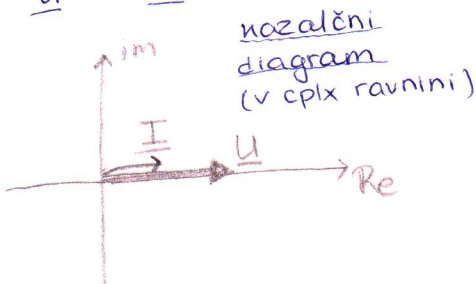 kazalčni
diagram
(v cplx ravnini)
im
I
U
Re